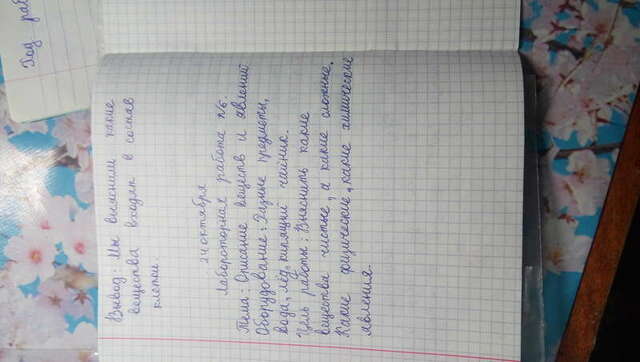 Ход раб
Вывод: Мы выяснили какие
вещества входят в состав
клетки.
24 октября
Лабороторная работа №6.
Тема: Описание веществ и явлений
Оборудование: Разные предметы,
вода, лёд, кипящий чайник.
Цель работы: Выяснить какие
вещества чистые, а какие сложные.
Какие физические, какие химические
явления.